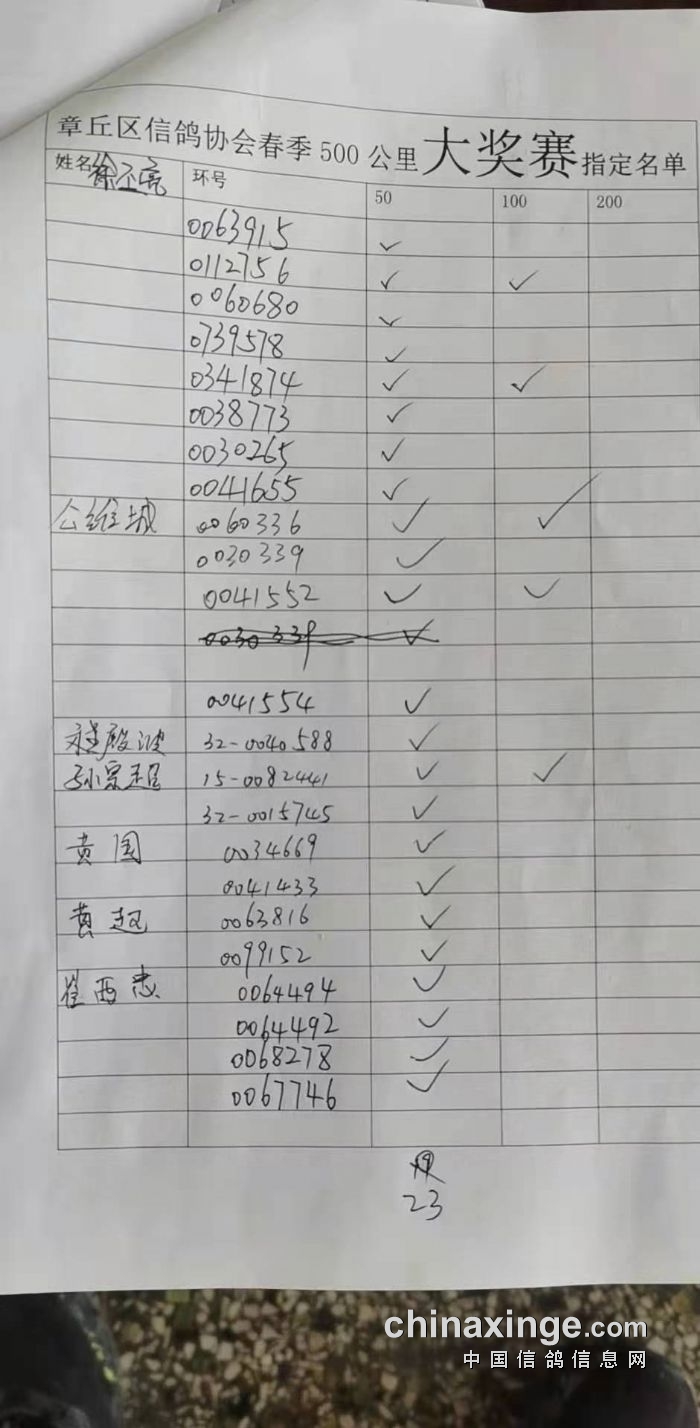 章丘区信鸽协会春季500公里大奖赛指定名单
姓名 环号 50 100 200
0063915 ✓
0112756 ✓ ✓
0060680 ✓
0739578 ✓
0341874 ✓ ✓
0038773 ✓
0030265 ✓
0041655 ✓
公维城 0060336 ✓ ✓
0030339 ✓
0041552 ✓ ✓
0030339 ✓
0041554 ✓
32-0040588 ✓
孙宗 15-0082441 ✓ ✓
32-0015745 ✓
黄国 0034669 ✓
0041433 ✓
黄超 0063816 ✓
0099152 ✓
崔西忠 0064494 ✓
0064492 ✓
0068278 ✓
0067746 ✓
23
chinaxinge.com
中国信鸽信息网